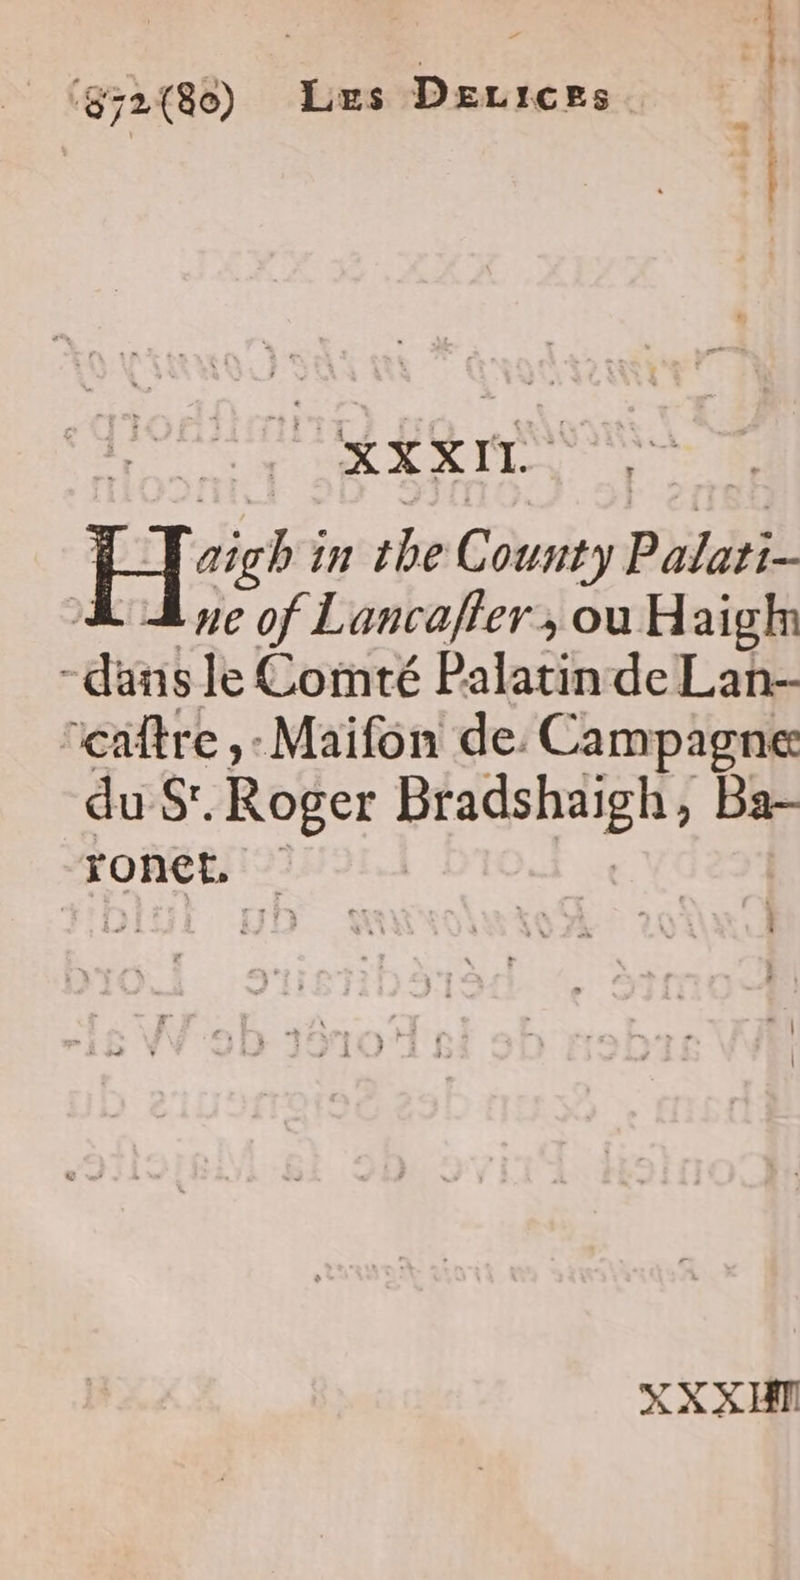 872(80) LES DELICES
XXXII.
Haigh in the County Palati-
ne of Lancaſter, ou Haigh
dans le Comté Palatin de Lan-
caſtre, Maiſon de Campagne
du Sr. Roger Bradshaigh, Ba-
ronet.
XXXIII